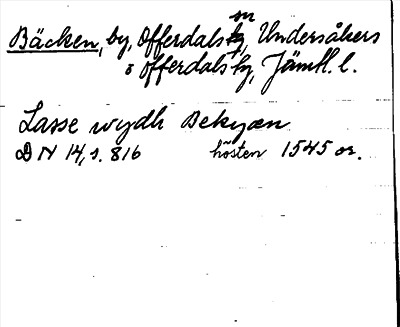 Bäcken, by, Offerdals sn, Undersåkers
o Offerdals tg, Jämtl. l.
Lasse wydh Bekyæn
DN 14, s. 816 hösten 1545 or.